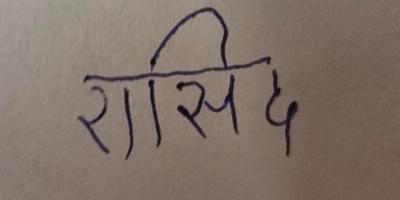 रासिद